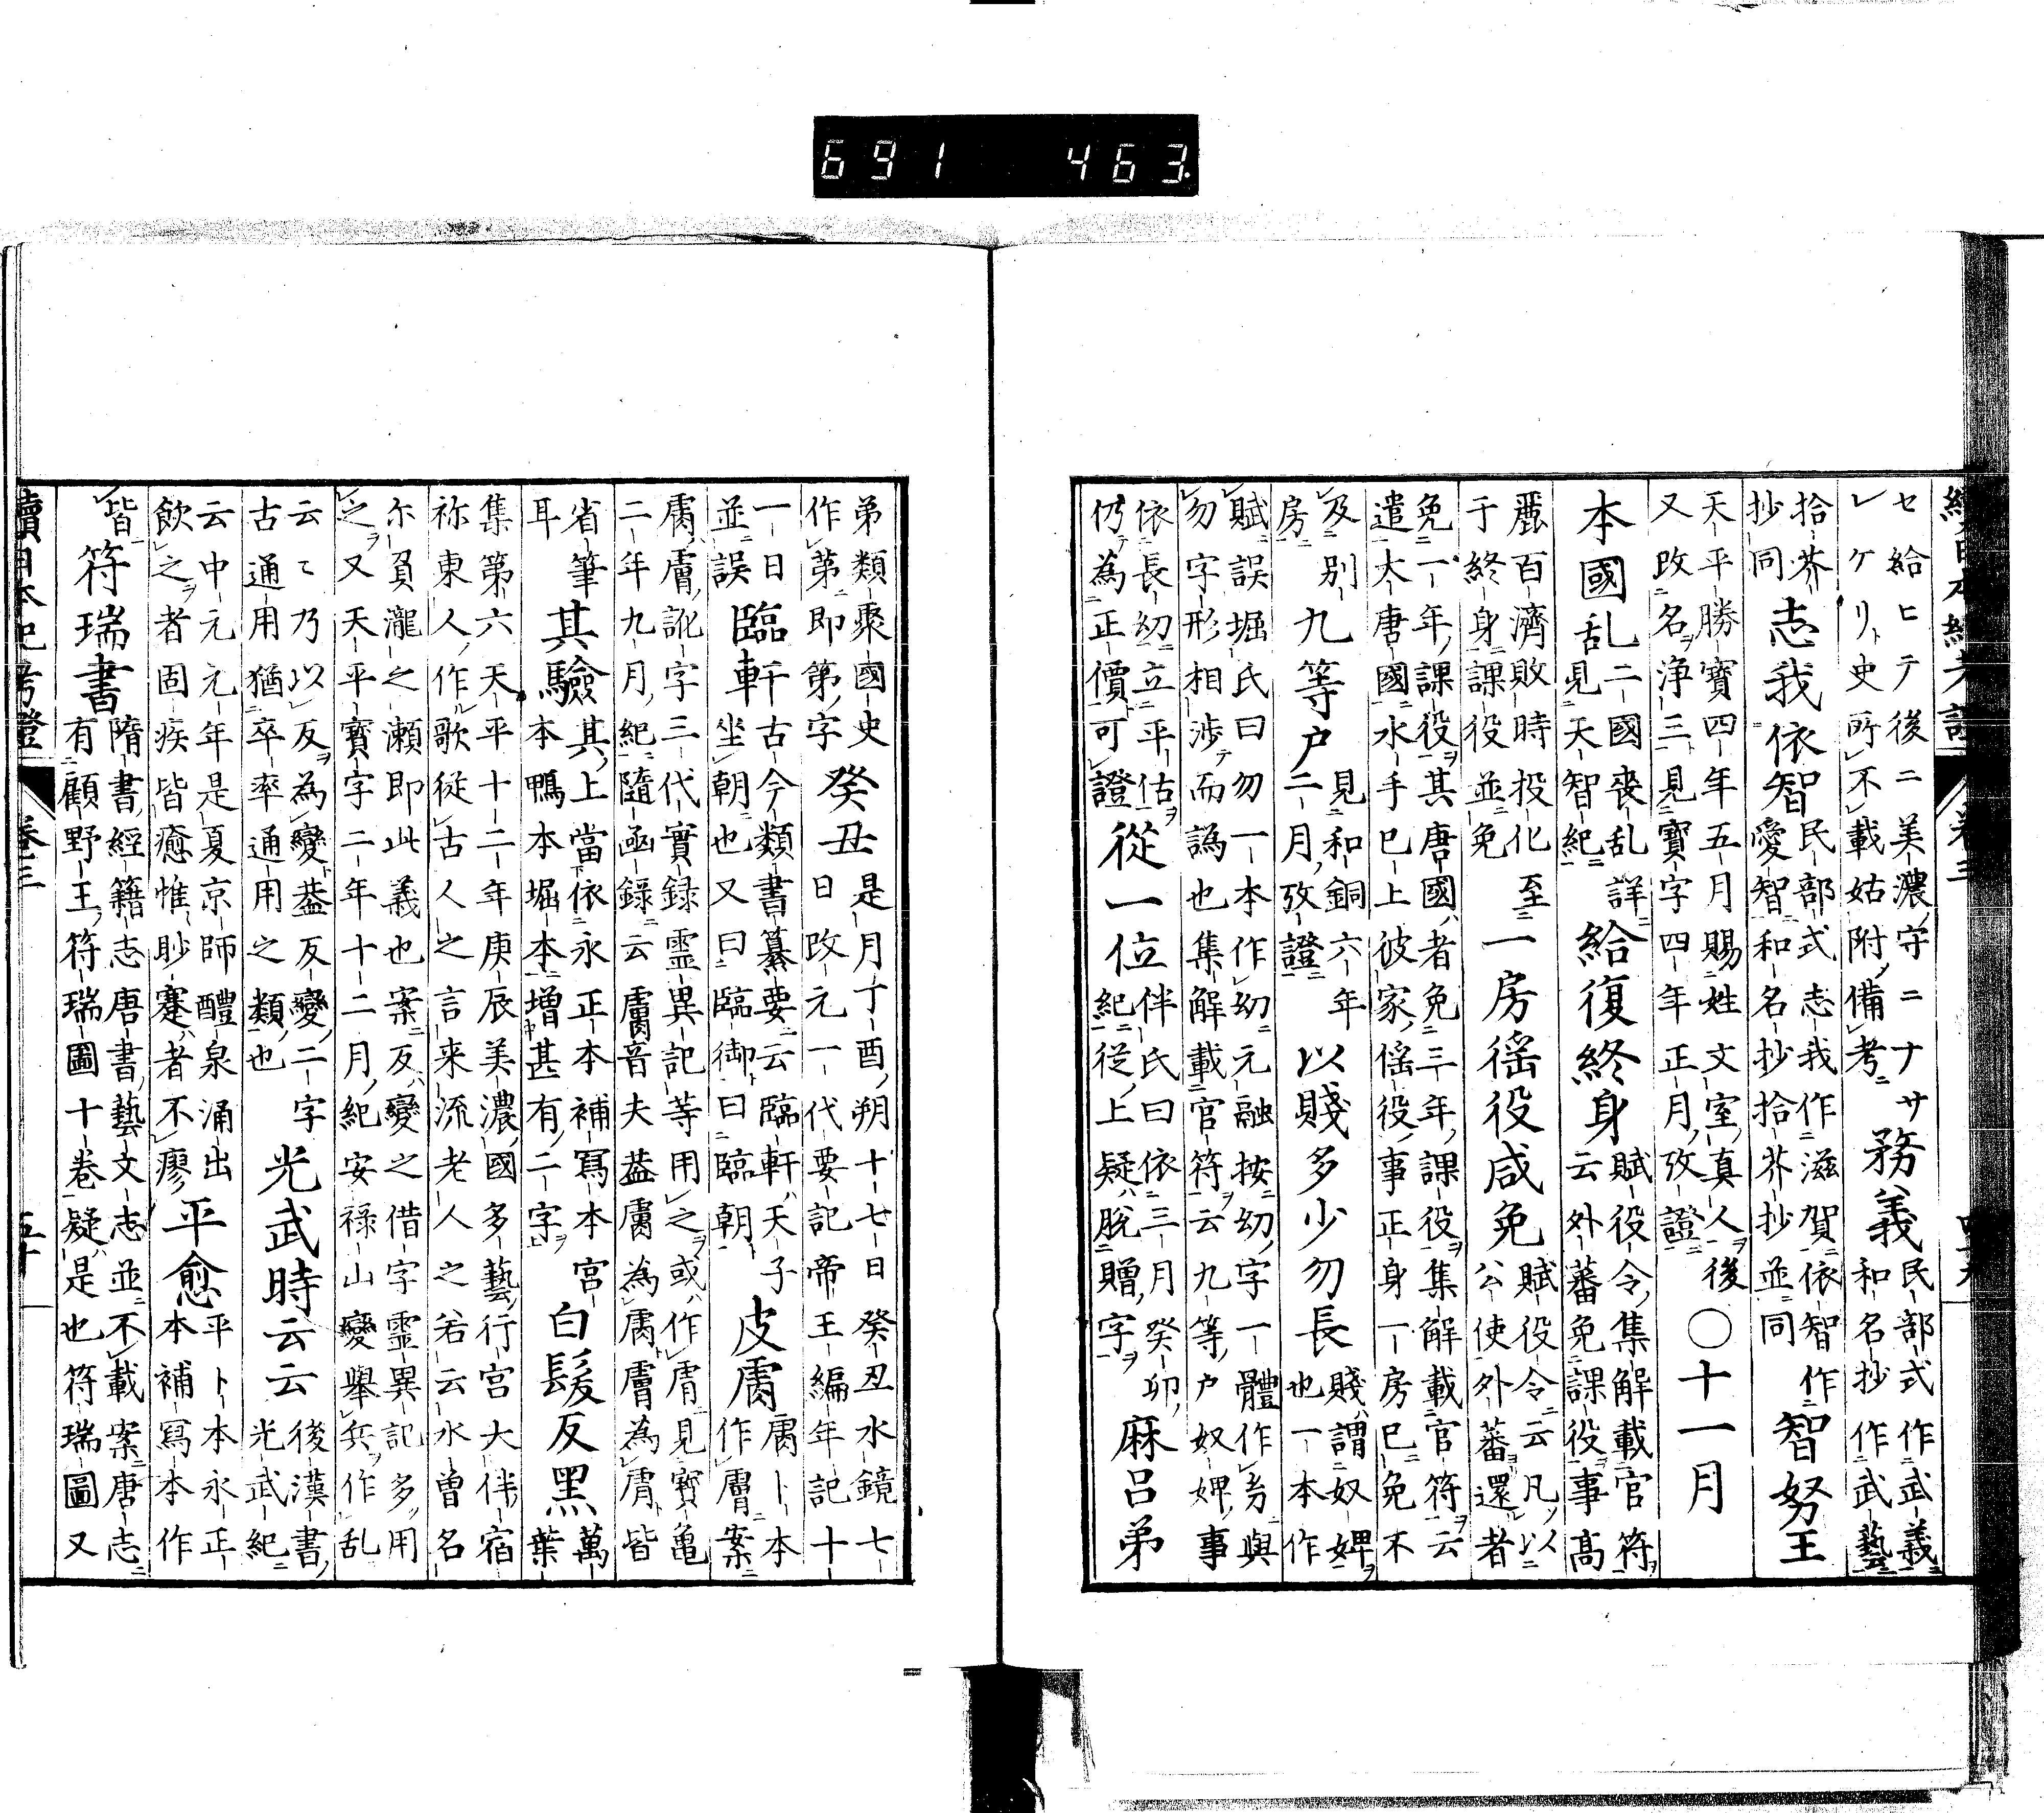 691 463
續日本紀考證 卷三
セ給ヒテ後ニ美濃守ニナサ
レケリト史所不載姑附備考
務義
民部式作武義
和名抄作武藝
拾芥
抄同
志我依智
民部式志我作滋賀依智作
愛智和名抄拾芥抄並同
智努王
天平勝寶四年五月賜姓文室真人後
又改名淨三見寶字四年正月攷證
〇十一月
本國乱
二國喪乱詳
見天智紀
給復終身
賦役令集解載官符
云外蕃免課役事高
麗百濟敗時投化至
于終身課役並免
一房徭役咸免
賦役令云凡以
公使外蕃還者
免一年課役其唐國者免三年課役集解載官符云
遣大唐國水手已上彼家徭役事正身一房已免不
及別
房
九等戸
見和銅六年
二月攷證
以賤多少勿長
賤謂奴婢
也一本作
賦誤堀氏曰勿一本作幼元融按幼字一體作㓜與
勿字形相涉而譌也集解載官符云九等戸奴婢事
依長幼立平估
仍為正價可證
從一位
伴氏曰依三月癸卯
紀從上疑脫贈字
麻呂弟
弟類聚國史
作第即第字
癸丑
是月丁酉朔十七日癸丑水鏡七
日改元一代要記帝王編年記十
一日
並誤
臨軒
古今類書纂要云臨軒天子
坐朝也又曰臨御曰臨朝
皮膚
膚卜本
作膚案
膚膚訛字三代實錄靈異記等用之或作膚見寶龜
二年九月紀隨函錄云膚音夫蓋膚為膚膚為膚皆
省筆
耳
其驗
其上當依永正本補寫本宮
本鴨本堀本增甚有二字
白髮反黑
萬
葉
集第六天平十二年庚辰美濃國多藝行宮大伴宿
祢東人作歌従古人之言来流老人之若云水曽名
尓負瀧之瀬即此義也案反變之借字靈異記多用
之又天平寶字二年十二月紀安祿山變擧兵作乱
云々乃以反為變蓋反變二字
古通用猶卒率通用之類也
光武時云云
後漢書
光武紀
云中元元年是夏京師醴泉涌出
飲之者固疾皆癒惟眇蹇者不廖
平愈
平卜本永正
本補寫本作
皆
符瑞書
隋書經籍志唐書藝文志並不載案唐志
有顧野王符瑞圖十卷疑是也符瑞圖又
續日本紀考證 卷三 五十